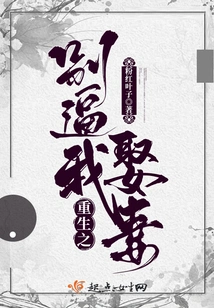 重生之
别逼我
娶妻
粉红叶子◎著
起点女生网